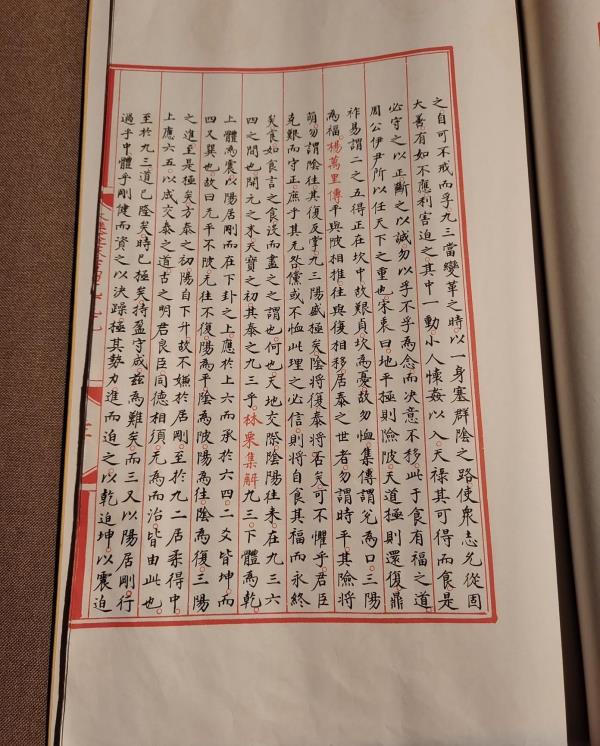 之自可不戒而孚九三當變革之時以一身塞群陰之路使衆志允從固
大善有如不應利害迫之其中一動小人懷姦以入天祿其可得而食是
必守之以正斷之以誠勿以孚不孚為念而決意不移此于食有福之道
周公伊尹所以任天下之重也宋衷曰地平極則險陂天道極則還復鼎
祚易謂二之五得正在坎中故艱貞坎為憂故勿恤集傳謂兌為口三陽
為福楊萬里傳平與陂相推往與復相移居泰之世者勿謂時平其險將
萌勿謂陰往其復反掌九三陽盛極矣陰將復泰將否矣可不懼乎君臣
克艱而守正庶乎其无咎儻或不恤此理之必信則將自食其福而永終
矣食如食言之食沒而盡之之謂也何也天地交際陰陽往來在九三六
四之間也開元之末天寶之初其泰之九三乎林栗集解九三下體為乾
上體為震以陽居剛而在下卦之上應於上六而承於六四二爻皆坤而
四又巽也故曰无平不陂无往不復陽為平陰為陂陽為往陰為復三陽
之進至是極矣方泰之初陽自下升故不嫌於居剛至於九二居柔得中
上應六五以成交泰之道古之明君良臣同德相須无為而治皆由此也
至於九三道已隆矣時已極矣持盈守成茲為難矣而三又以陽居剛行
過乎中體乎剛健而資之以決躁極其勢力進而迫之以乾迫坤以震迫
永樂大典卷